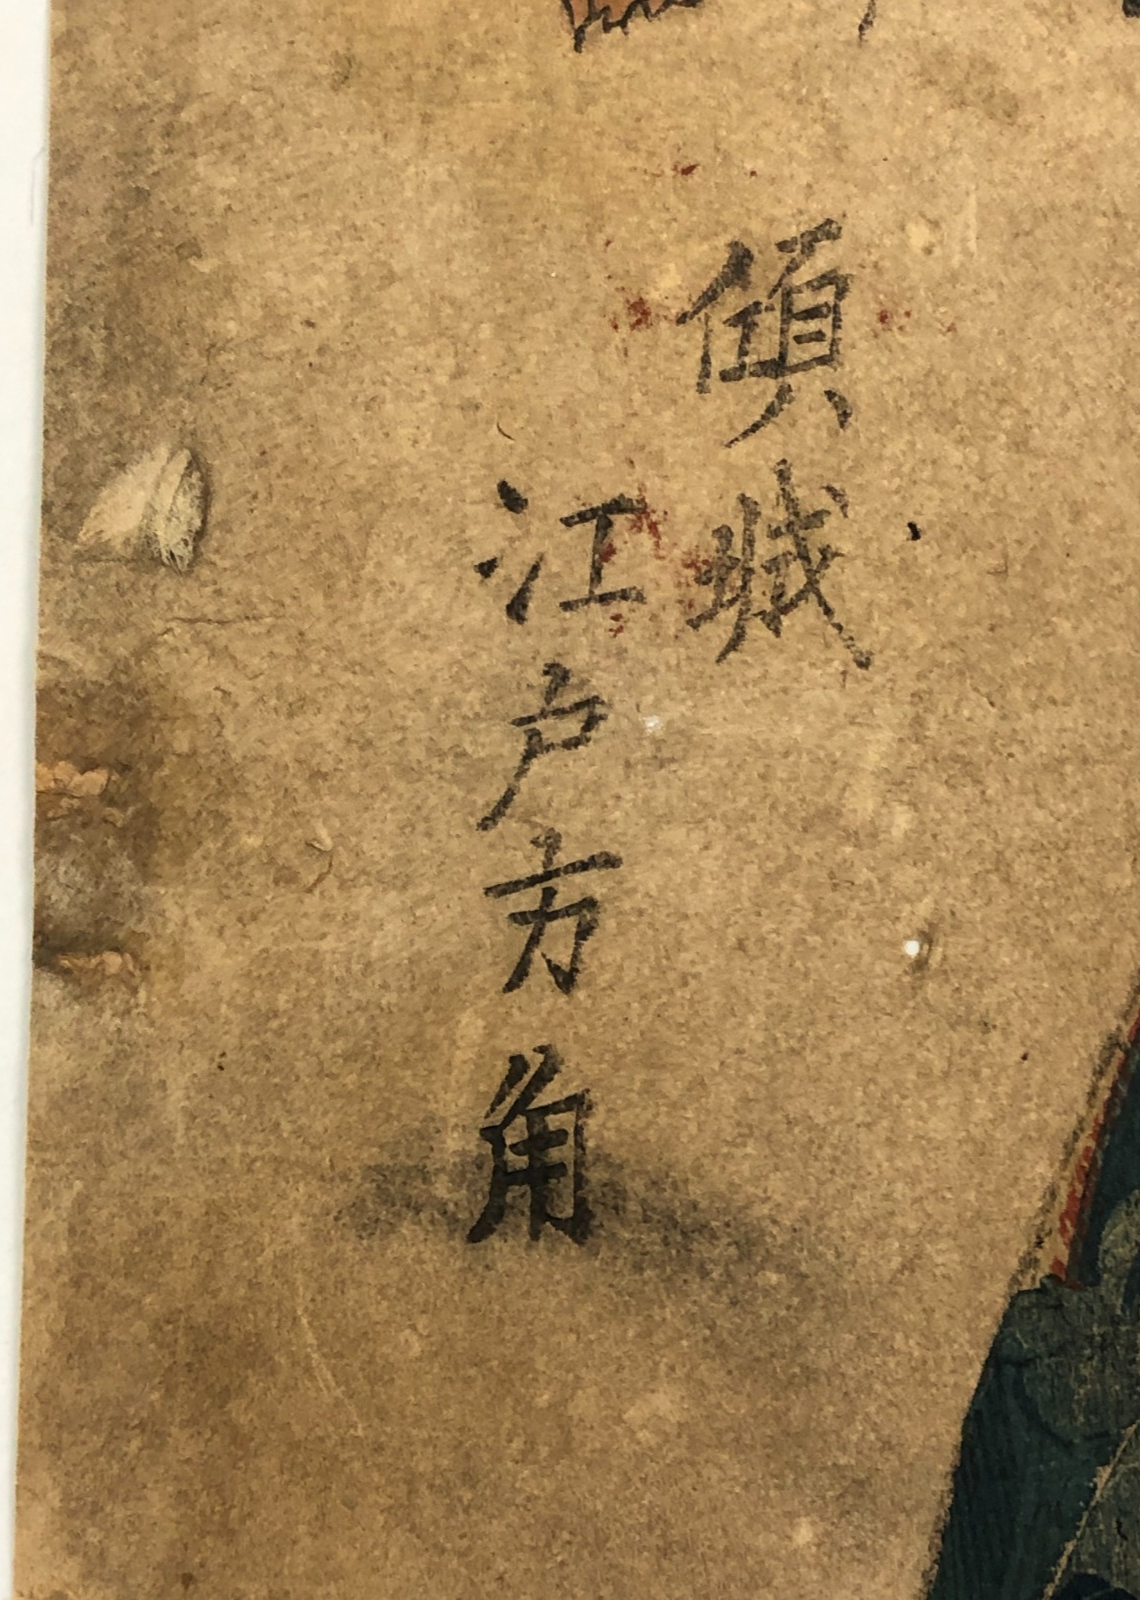 傾城
江戸方角